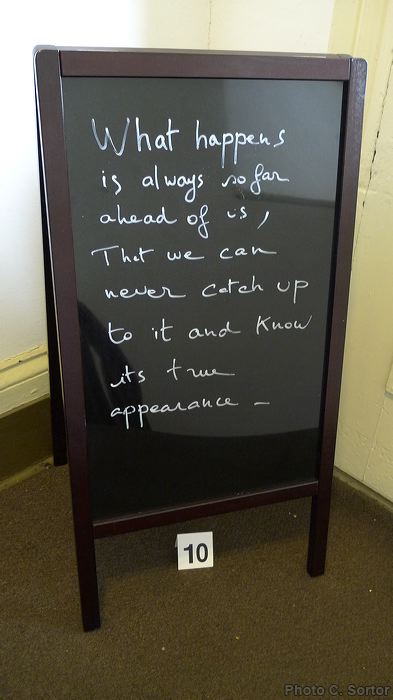 What happens
is always so far
ahead of us,
That we can
never catch up
to it and Know
its true
appearance -
10
Photo C. Sortor